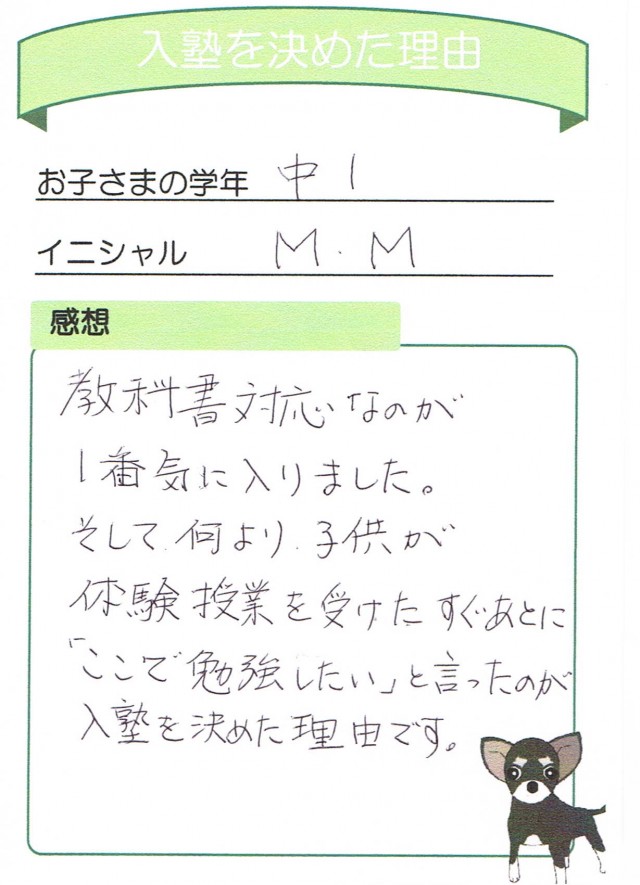 入塾を決めた理由
お子さまの学年 中1
イニシャル M.M
感想
教科書対応なのが
1番気に入りました。
そして何より、子供が
体験授業を受けたすぐあとに
「ここで勉強したい」と言ったのが
入塾を決めた理由です。